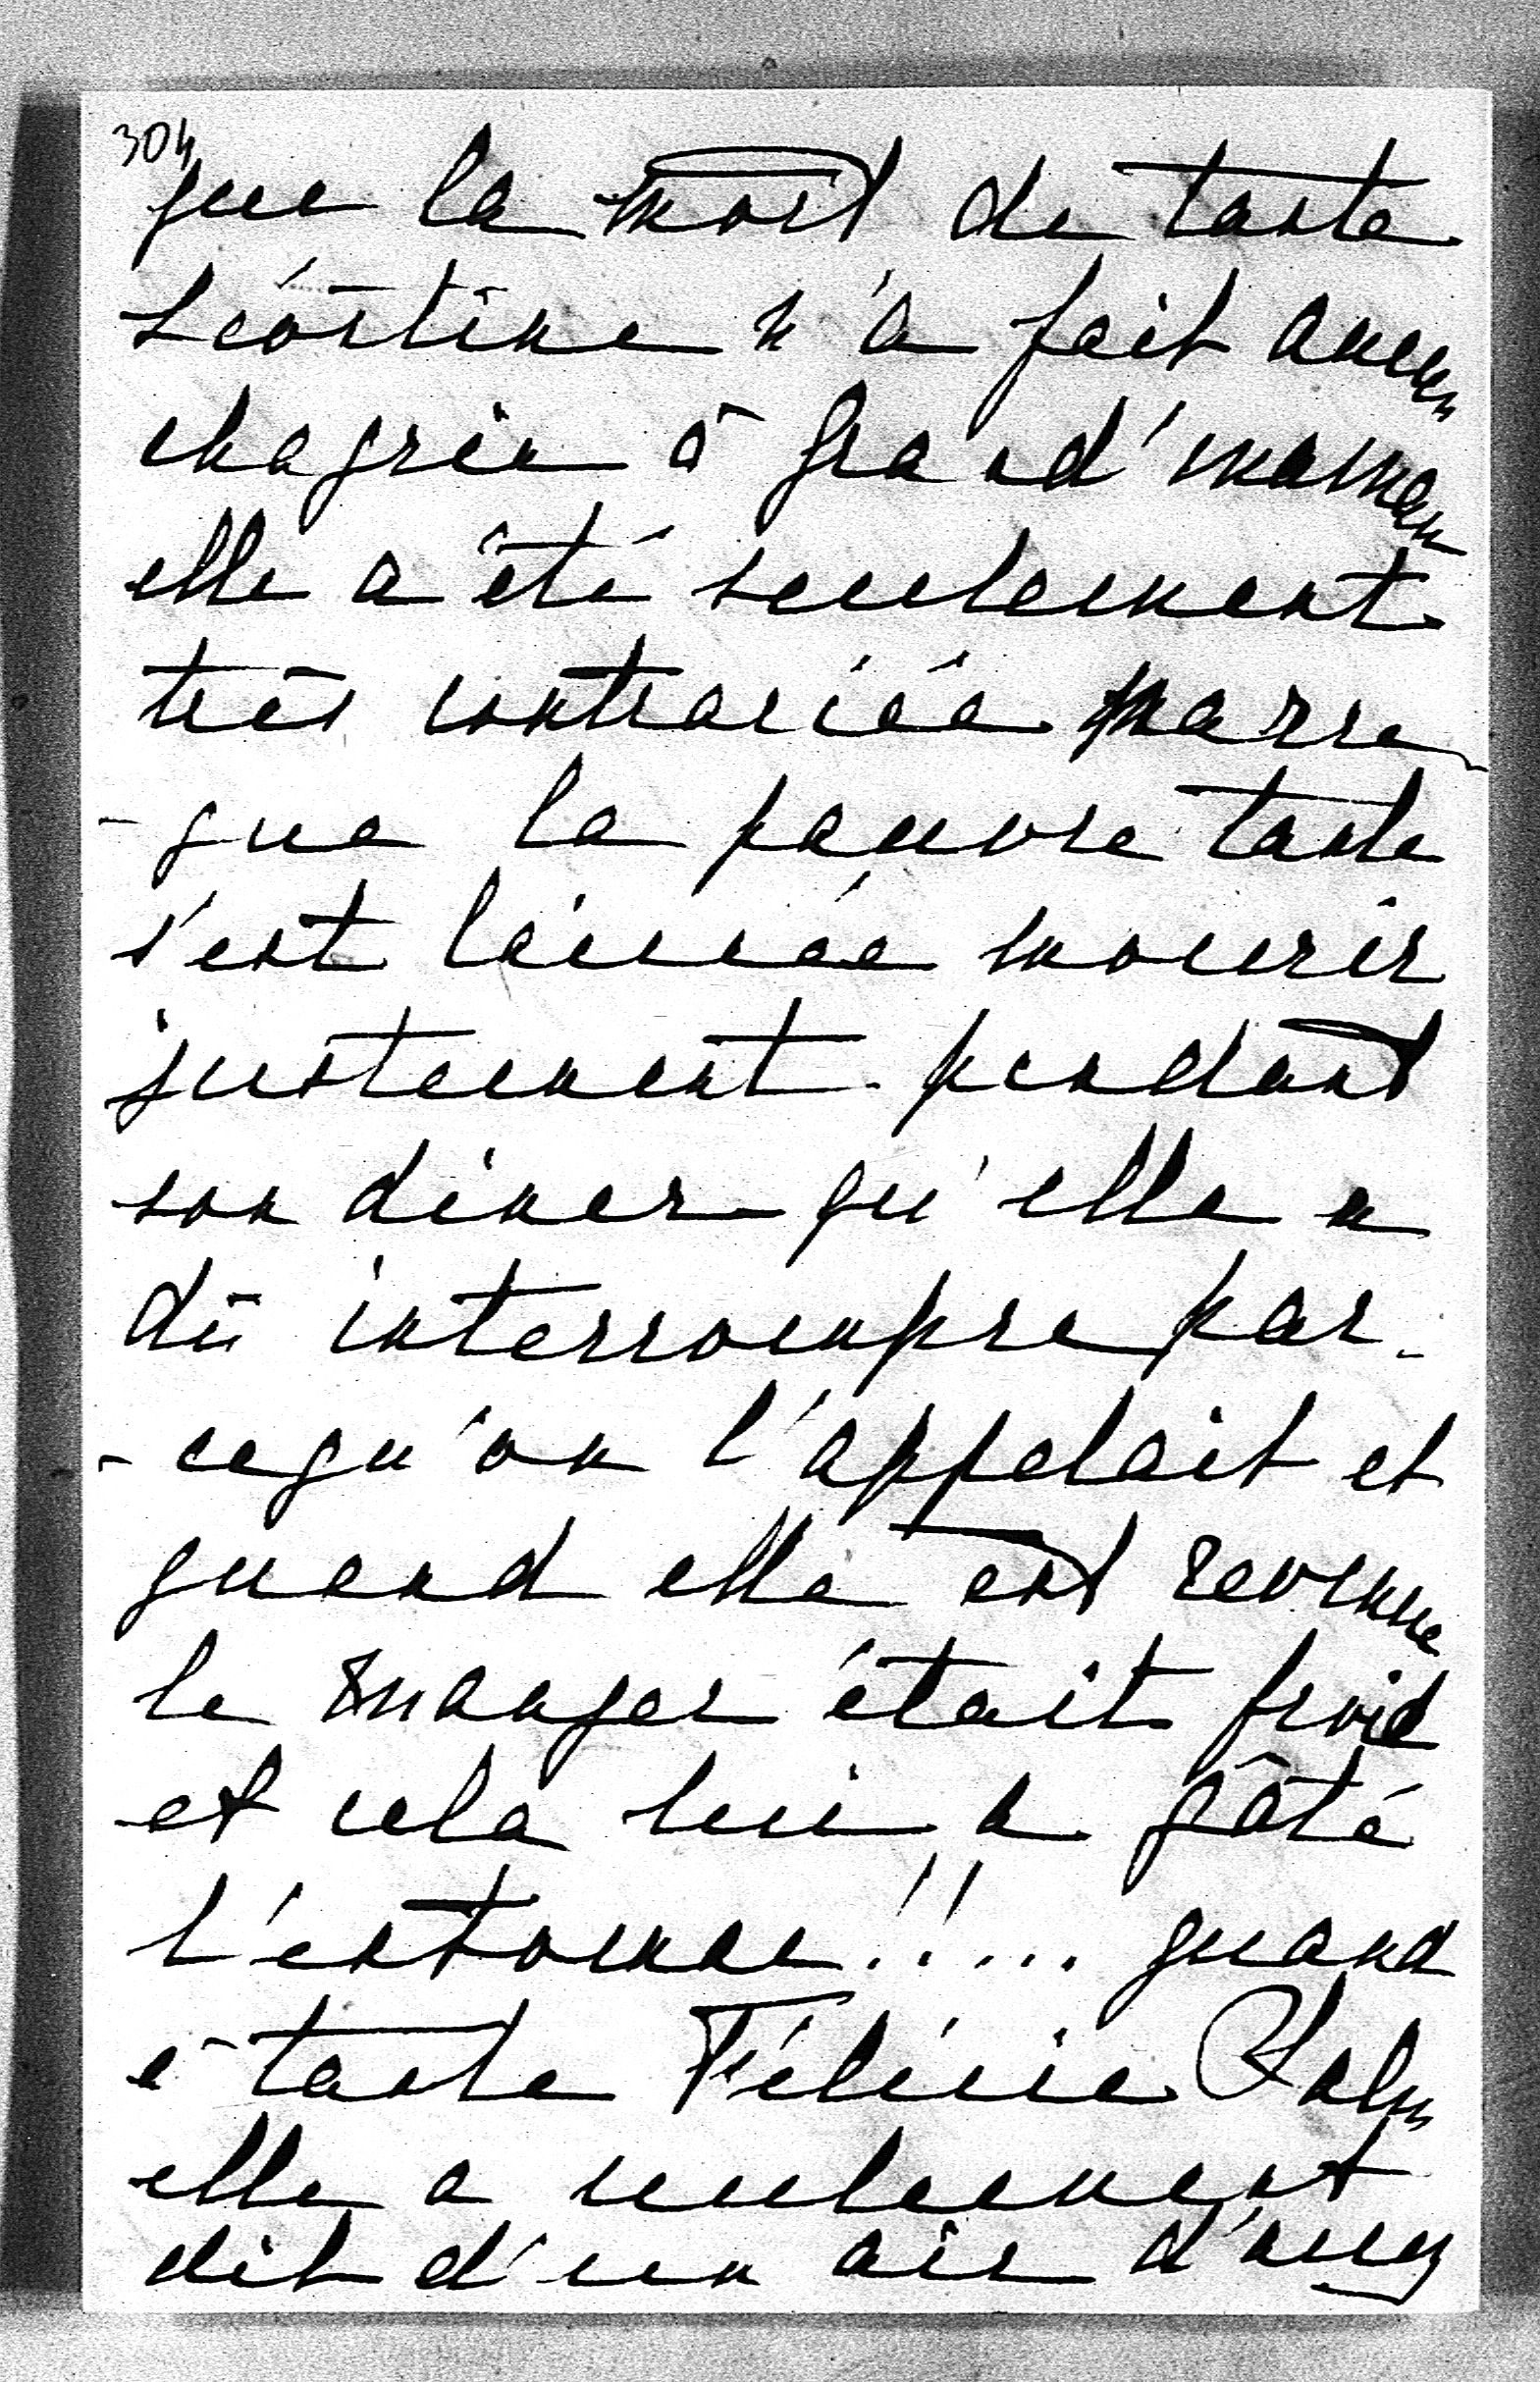 304
que la mort de tante
Léontine n'a fait aucun
chagrin à grand'maman
elle a été seulement
très contrariée parce
-que la pauvre tante
s'est laissée mourir
justement pendant
son diner qu'elle a
dû interrompre par-
-cequ'on l'appelait et
quand elle est revenue
le manger était froid
et cela lui a gâté
l'estomac!!... quand
à tante Félicie
elle a seulement
dit d'un air